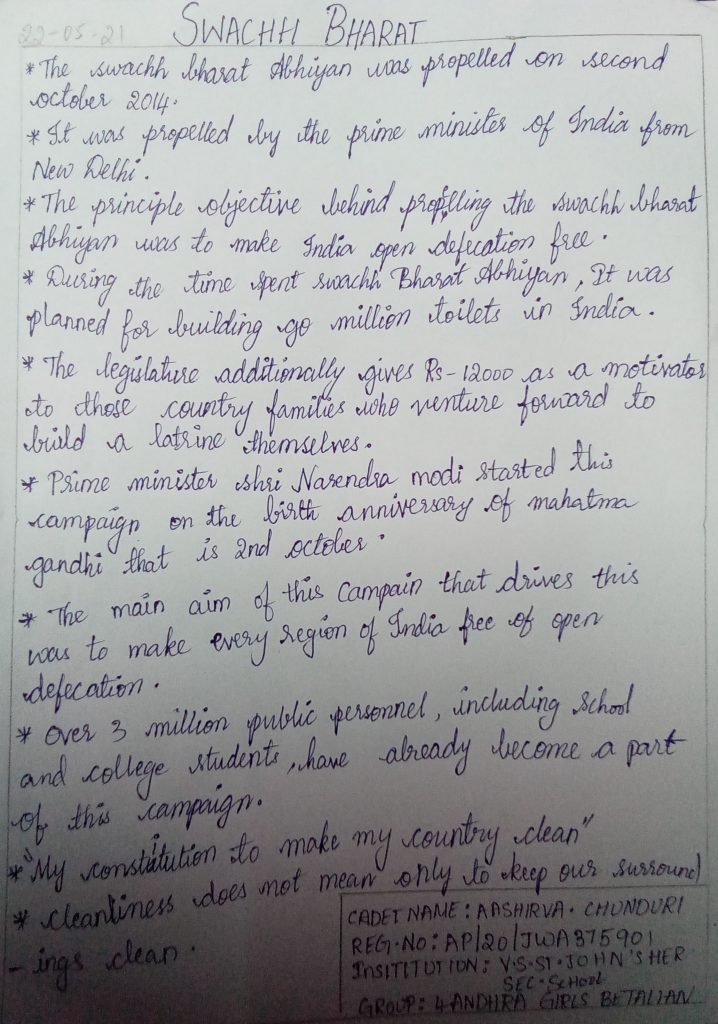 22-05-21
SWACHH BHARAT
* The swachh bharat Abhiyan was propelled on second
october 2014.
* It was propelled by the prime minister of India from
New Delhi.
* The principle objective behind propelling the swachh bharat
Abhiyan was to make India open defecation free.
* During the time spent swachh Bharat Abhiyan, It was
planned for building go million toilets in India.
* The legislature additionally gives Rs-12000 as a motivator
to those country families who venture forward to
build a latrine themselves.
* Prime minister shri Narendra modi started this
campaign on the birth anniversary of mahatma
gandhi that is 2nd october.
* The main aim of this Campain that drives this
was to make every region of India free of open
defecation.
* Over 3 million public personnel, including School
and college students, have already become a part
of this campaign.
* "My constitution to make my country clean"
* cleanliness does not mean only to keep our surround
- ings clean.
CADET NAME: AASHIRVA. CHUNDURI
REG.NO: AP/20/JWA375901
INSITITUTION: V.S.ST.JOHN'S HER
SEC.SCHOOL
GROUP: 4 ANDHRA GIRLS BETALIAN